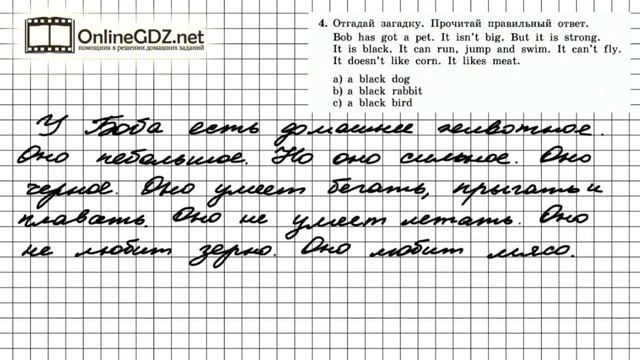 OnlineGDZ.net
помощник в решении домашних заданий
4. Отгадай загадку. Прочитай правильный ответ.
Bob has got a pet. It isn't big. But it is strong.
It is black. It can run, jump and swim. It can't fly.
It doesn't like corn. It likes meat.
a) a black dog
b) a black rabbit
c) a black bird
У Боба есть домашнее животное.
Оно небольшое. Но оно сильное. Оно
черное. Оно умеет бегать, прыгать и
плавать. Оно не умеет летать. Оно
не любит зерно. Оно любит мясо.